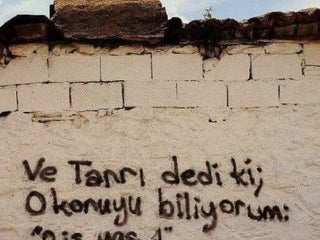 Ve Tanrı dedi ki;
O konuyu biliyorum: